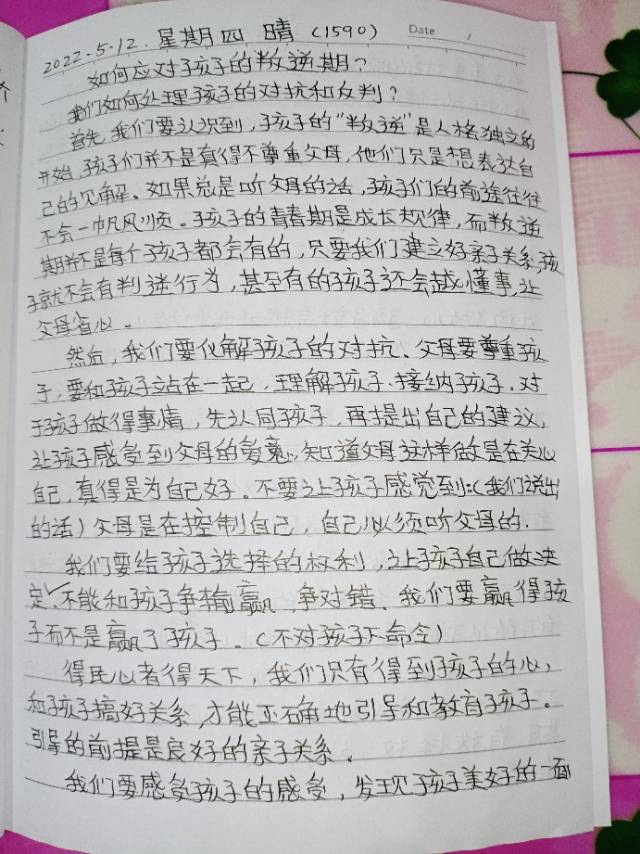 2022.5.12. 星期四 晴 (1590) Date /
如何应对孩子的判逆期?
我们如何处理孩子的对抗和反判?
首先,我们要认识到,孩子的“判逆”是人格独立的
开始,孩子们并不是真得不尊重父母,他们只是想表达自
己的见解。如果总是听父母的话,孩子们的前途往往
不会一帆风顺。孩子的青春期是成长规律,而判逆
期并不是每个孩子都会有的,只要我们建立好亲子关系,孩
子就不会有判逆行为,甚至有的孩子还会越懂事,让
父母省心。
然后,我们要化解孩子的对抗、父母要尊重孩
子,要和孩子站在一起,理解孩子、接纳孩子,对
于孩子做得事情,先认同孩子,再提出自己的建议,
让孩子感受到父母的爱意,知道父母这样做是在关心
自己,真得是为自己好。不要让孩子感觉到:(我们说出
的话)父母是在控制自己,自己必须听父母的.
我们要给孩子选择的权利,让孩子自己做决
定,不能和孩子争输赢,争对错、我们要赢得孩
子而不是赢了孩子。(不对孩子下命令)
得民心者得天下,我们只有得到孩子的心,
和孩子搞好关系,才能正确地引导和教育孩子。
引导的前提是良好的亲子关系。
我们要感受孩子的感受,发现孩子美好的一面